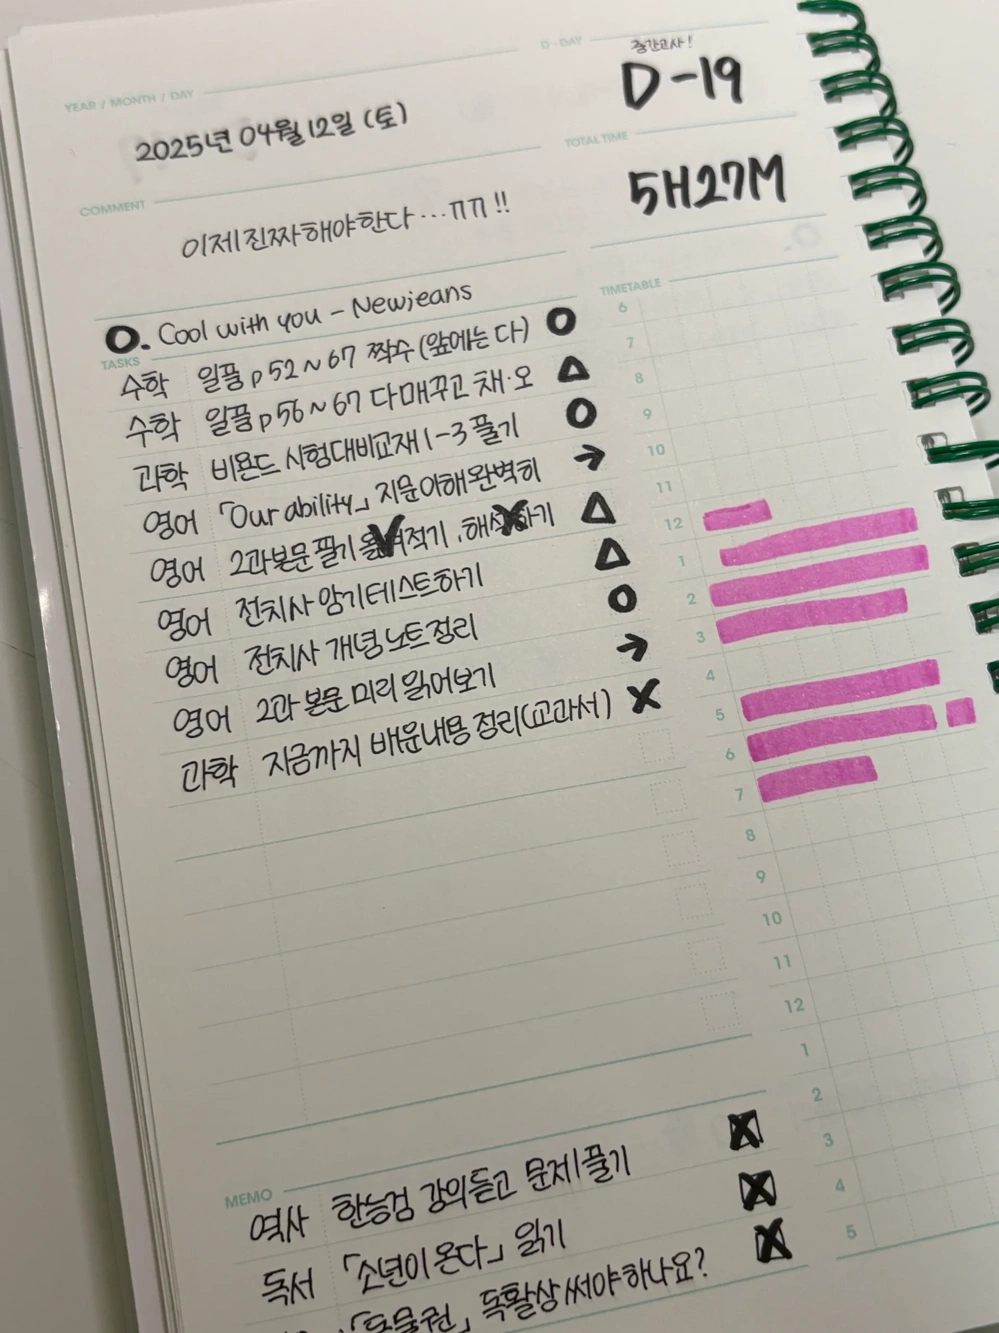 YEAR / MONTH / DAY
2025년 04월 12일 (토)
D-DAY
중간고사!
D-19
COMMENT
이제 진짜 해야한다...ㄲㄲ!!
TOTAL TIME
5H27M
O. Cool with you - Newjeans
TASKS
수학 일품 p52~67 짝수(앞에는 다) O
수학 일품 p56~67 다매꾸고 채·오 △
과학 비욘드 시험대비교재 1-3 풀기 O
영어 「Our ability」 지문이해 완벽히 →
영어 2과본문 필기 적기, 하기 △
영어 전치사 암기테스트하기 △
영어 전치사 개념노트정리 O
영어 2과 본문 미리 읽어보기 →
과학 지금까지 배운내용 정리(교과서) X
TIMETABLE
6
7
8
9
10
11
12
1
2
3
4
5
6
7
8
9
10
11
12
1
2
3
4
5
MEMO
역사 한능검 강의듣고 문제풀기 X
독서 「소년이 온다」 읽기 X
「동물권」 독활상 써야하나요? X